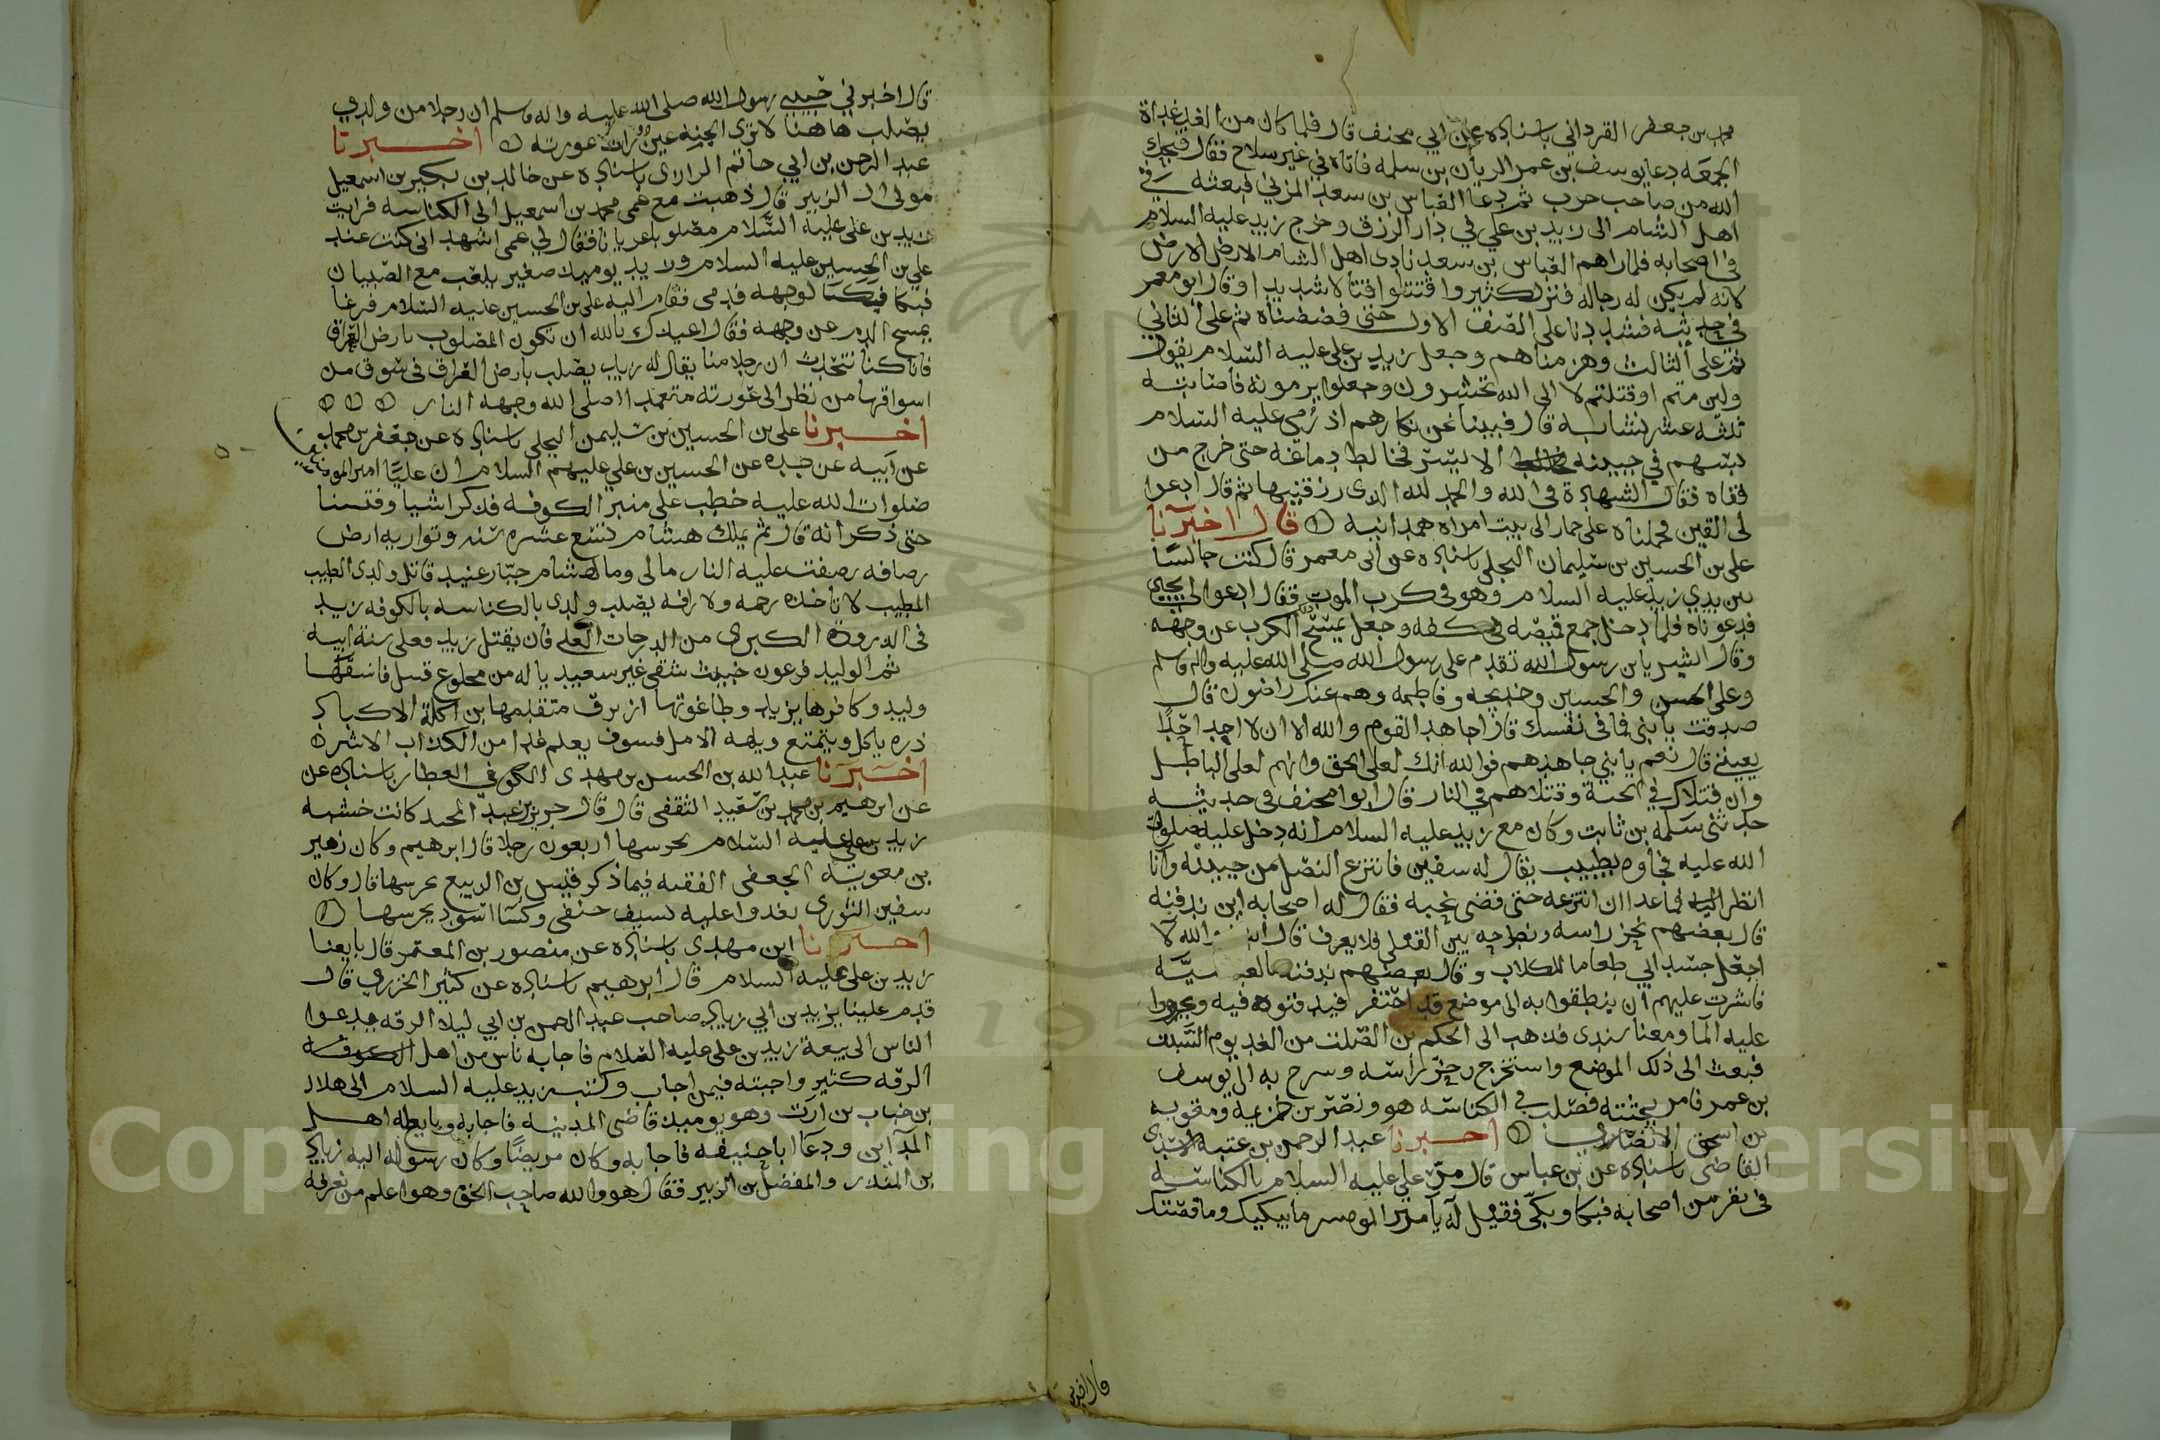 محمد بن جعفر القرداني باسناده عن ابي مخنف قال فلما كان من الغد غداة
الجمعه دعا يوسف بن عمر الريان بن سلمه فاتاه في غير سلاح فقال قبحك
الله من صاحب حرب ثم دعا العباس بن سعد المزني فبعثه في
اهل الشام الى زيد بن علي في دار الرزق وخرج زيد عليه السلام
في اصحابه فلما راهم العباس بن سعد نادى اهل الشام الارض الارض
لانه لم يكن له رجاله فنزل كثير واقتتلوا قتالا شديدا وقال ابو معمر
في حديثه فشددنا على الصف الاول حتى فضضناه ثم على الثاني
ثم على الثالث وهزمناهم وجعل زيد بن علي عليه السلام يقول
ولئن متم او قتلتم لا الى الله تحشرون وجعلوا يرمونه فاصابته
ثلثه عشر نشابه قال فبينا نحن نكارهم اذ رمي عليه السلام
بسهم في جبينه الايسر فخالط دماغه حتى خرج من
قفاه فقال الشهادة في الله والحمد لله الذى رزقنيها ثم قال ادعوا
لي القين فحملناه على حمار الى بيت امراه همدانيه قال اخبرنا
علي بن الحسين بن سليمان البجلي باسناده عن ابي معمر قال كنت جالسًا
بين يدي زيد عليه السلام وهو في كرب الموت فقال ادعوا لي يحيى
فدعوناه فلما دخل جمع قميصه في كفه وجعل يمسح الكرب عن وجهه
وقال ابشر يا بن رسول الله تقدم على رسول الله صلى الله عليه واله وسلم
وعلي الحسن والحسين وخديجه وفاطمه وهم عنك راضون قال
صدقت يا بني فما في نفسك قال اجاهد القوم والله الا ان لا اجد احدًا
يعينني قال نعم يا بني جاهدهم فوالله انك لعلى الحق وانهم لعلى الباطل
وان قتلاك في الجنة وقتلاهم في النار قال ابو مخنف في حديثه
حدثني سلمه بن ثابت وكان مع زيد عليه السلام انه دخل عليه صلوات
الله عليه فجاوه بطبيب يقال له سفين فانتزع النصل من جبينه وانا
انظر اليه فما عدا ان انتزعه حتى قضى نحبه فقال له اصحابه اين ندفنه
قال بعضهم نحز راسه ونطرحه بين القتلى فلا يعرف قال ابنه والله لا
اجعل جسد ابي طعاما للكلاب وقال بعضهم ندفنه
فاشرت عليهم ان ينطلقوا به الى موضع قد احتفر فيدفنوه فيه ويجروا
عليه الما ومعنا سندي فذهب الى الحكم بن الصلت من الغد يوم السبت
فبعث الى ذلك الموضع واستخرج وحز راسه وسرح به الى يوسف
بن عمر فامر بجثته فصلب في الكناسه هو ونصر بن خزيمه ومعويه
بن اسحق الانصاري اخبرنا عبد الرحمن بن عتبه
القاضي باسناده عن بن عباس قال مر علي عليه السلام بالكناسه
في نفر من اصحابه فبكا وبكى فقيل له يا امير المومنين ما يبكيك وما قصتك
قال اخبرني
قال اخبرني حبيبي رسول الله صلى الله عليه واله وسلم ان رجلا من ولدي
يصلب هاهنا لا ترى الجنه عين رات عورته اخبرنا
عبد الرحمن بن ابي حاتم الرازى باسناده عن خالد بن بكير بن اسمعيل
مولى ال الزبير قال ذهبت مع عمي محمد بن اسمعيل الى الكناسه فرايت
زيد بن علي عليه السلام مصلوبا عريانا فقال لي عمي اشهد اني كنت عند
علي بن الحسين عليه السلام وزيد يوميذ صغير يلعب مع الصبيان
فبكا لوجهه فدمى فقام اليه علي بن الحسين عليه السلام فزعا
يمسح الدم عن وجهه فقال اعيذك بالله ان تكون المصلوب بارض العراق
فانا كنا نتحدث ان رجلا منا يقال له زيد يصلب بارض العراق في سوق من
اسواقها من نظر الى عورته متعمدا اصلى الله وجهه النار
اخبرنا علي بن الحسين بن سليمن البجلي باسناده عن جعفر بن محمد
عن ابيه عن جده عن الحسين بن علي عليهم السلام ان عليًا امير المومنين
صلوات الله عليه خطب على منبر الكوفه فذكر اشيا وفتننا
حتى ذكر انه قال ثم يملك هشام تسع عشره سنه وتواريه ارض
رصافه رصفت عليه النار مالي ومال هشام جبار عنيد قاتل ولدي الطيب
المطيب لا تاخذه رحمه ولا رافه يصلب ولدي بالكناسه بالكوفه زيد
في الذروة الكبرى من الدرجات العلى فان يقتل زيد فعلى سنة ابيه
ثم الوليد فرعون خبيث شقي غير سعيد يا له من مخلوع قتيل فاسقها
وليد وكافرها يزيد وطاغوتها ازيرق متقدمها بن اكلة الاكباد
ذره ياكل ويتمتع ويلهه الامل فسوف يعلم غدا من الكذاب الاشر
اخبرنا عبد الله بن الحسن بن مهدى الكوفي العطار باسناده عن
عن ابرهيم بن محمد بن سعيد الثقفي قال قال جرير بن عبد الحميد كانت خشبه
زيد بن علي عليه السلام يحرسها اربعون رجلا قال ابرهيم وكان زهير
بن معويه الجعفي الفقيه فيما ذكر قيس بن الربيع يحرسها قال وكان
سفين الثوري يغدوا عليه بسيف حنفي وكسا اسود يحرسها
اخبرنا ابن مهدي باسناده عن منصور بن المعتمر قال بايعنا
زيد بن علي عليه السلام قال ابرهيم باسناده عن كثير الخزرفي قال
قدم علينا يزيد بن ابي زياد صاحب عبد الرحمن بن ابي ليلا الرقه يدعوا
الناس الى بيعة زيد بن علي عليه السلام فاجابه ناس من اهل
الرقه كثير واجبته فيمن اجاب وكتب زيد عليه السلام الى هلال
بن خباب بن ارت وهو يوميذ قاضي المدينه فاجابه وبايعه اهل
المداين ودعا ابا حنيفه فاجابه وكان مريضًا وكان رسوله اليه زياد
بن المنذر والمفضل بن الزبير فقال هو والله صاحب الحق وهو اعلم من نعرفه